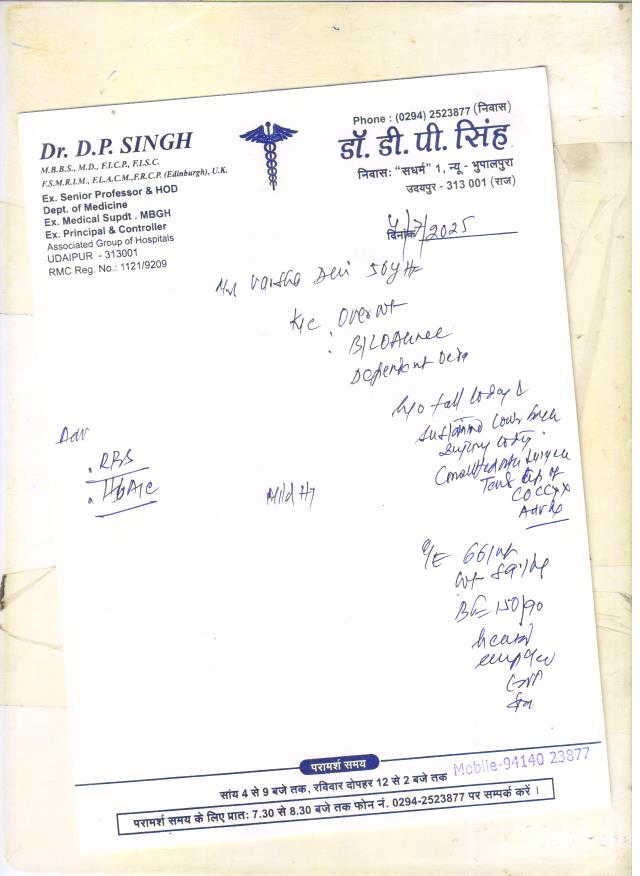 Dr. D.P. SINGH
M.B.B.S., M.D., F.I.C.P., F.I.S.C.
F.S.M.R.I.M., F.L.A.C.M.,F.R.C.P. (Edinburgh), U.K.
Ex. Senior Professor & HOD
Dept. of Medicine
Ex. Medical Supdt . MBGH
Ex. Principal & Controller
Associated Group of Hospitals
UDAIPUR - 313001
RMC Reg. No.: 1121/9209
Phone : (0294) 2523877 (निवास)
डॉ. डी. पी. सिंह
निवास: “सधर्म” 1, न्यू - भुपालपुरा
उदयपुर - 313 001 (राज)
दिनांक 4/7/2025
Varsha Devi 50y
K/C Over wt
Dependent
H/o fall today
sustained lower back
injury today
Tend tip of
COCCYX
Adv
Adv
. RBS
. HbA1c
Mild
O/E 66/m
wt 89
BP= 150/90
heart
परामर्श समय
सांय 4 से 9 बजे तक, रविवार दोपहर 12 से 2 बजे तक Mobile-94140 23877
परामर्श समय के लिए प्रात: 7.30 से 8.30 बजे तक फोन नं. 0294-2523877 पर सम्पर्क करें ।